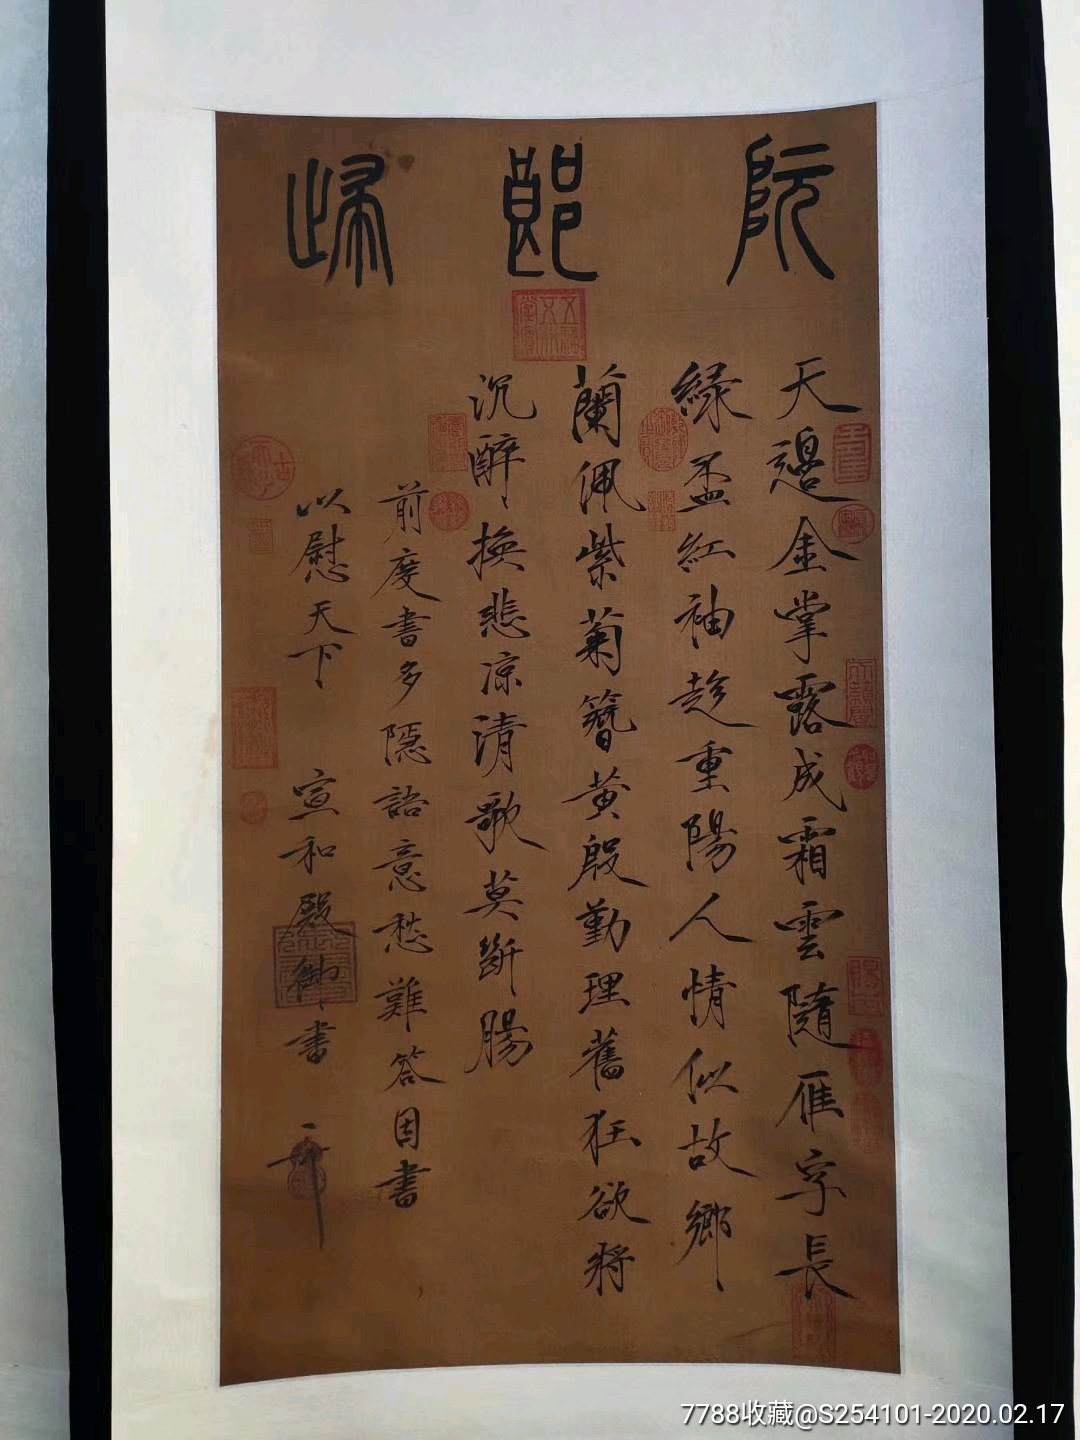 阮郎歸
天邊金掌露成霜雲隨雁字長
綠盃紅袖趁重陽人情似故鄉
蘭佩紫菊簪黃殷勤理舊狂欲將
沉醉換悲凉清歌莫斷腸
前度書多隱諮意愁難答因書
以慰天下 宣和殿御書
7788收藏@S254101-2020.02.17